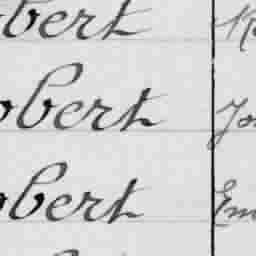 bert
obert Jo
obert Em